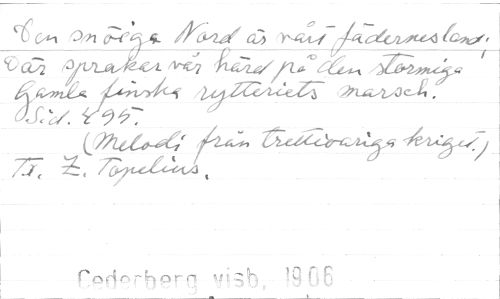 Den snöiga Nord är vårt fädernesland;
Där sprakar vår härd på den stormiga
Gamla finska rytteriets marsch.
Sid. 495.
(Melodi från trettioåriga kriget.)
Tx. Z. Topelius.
Cederberg visb, 1906